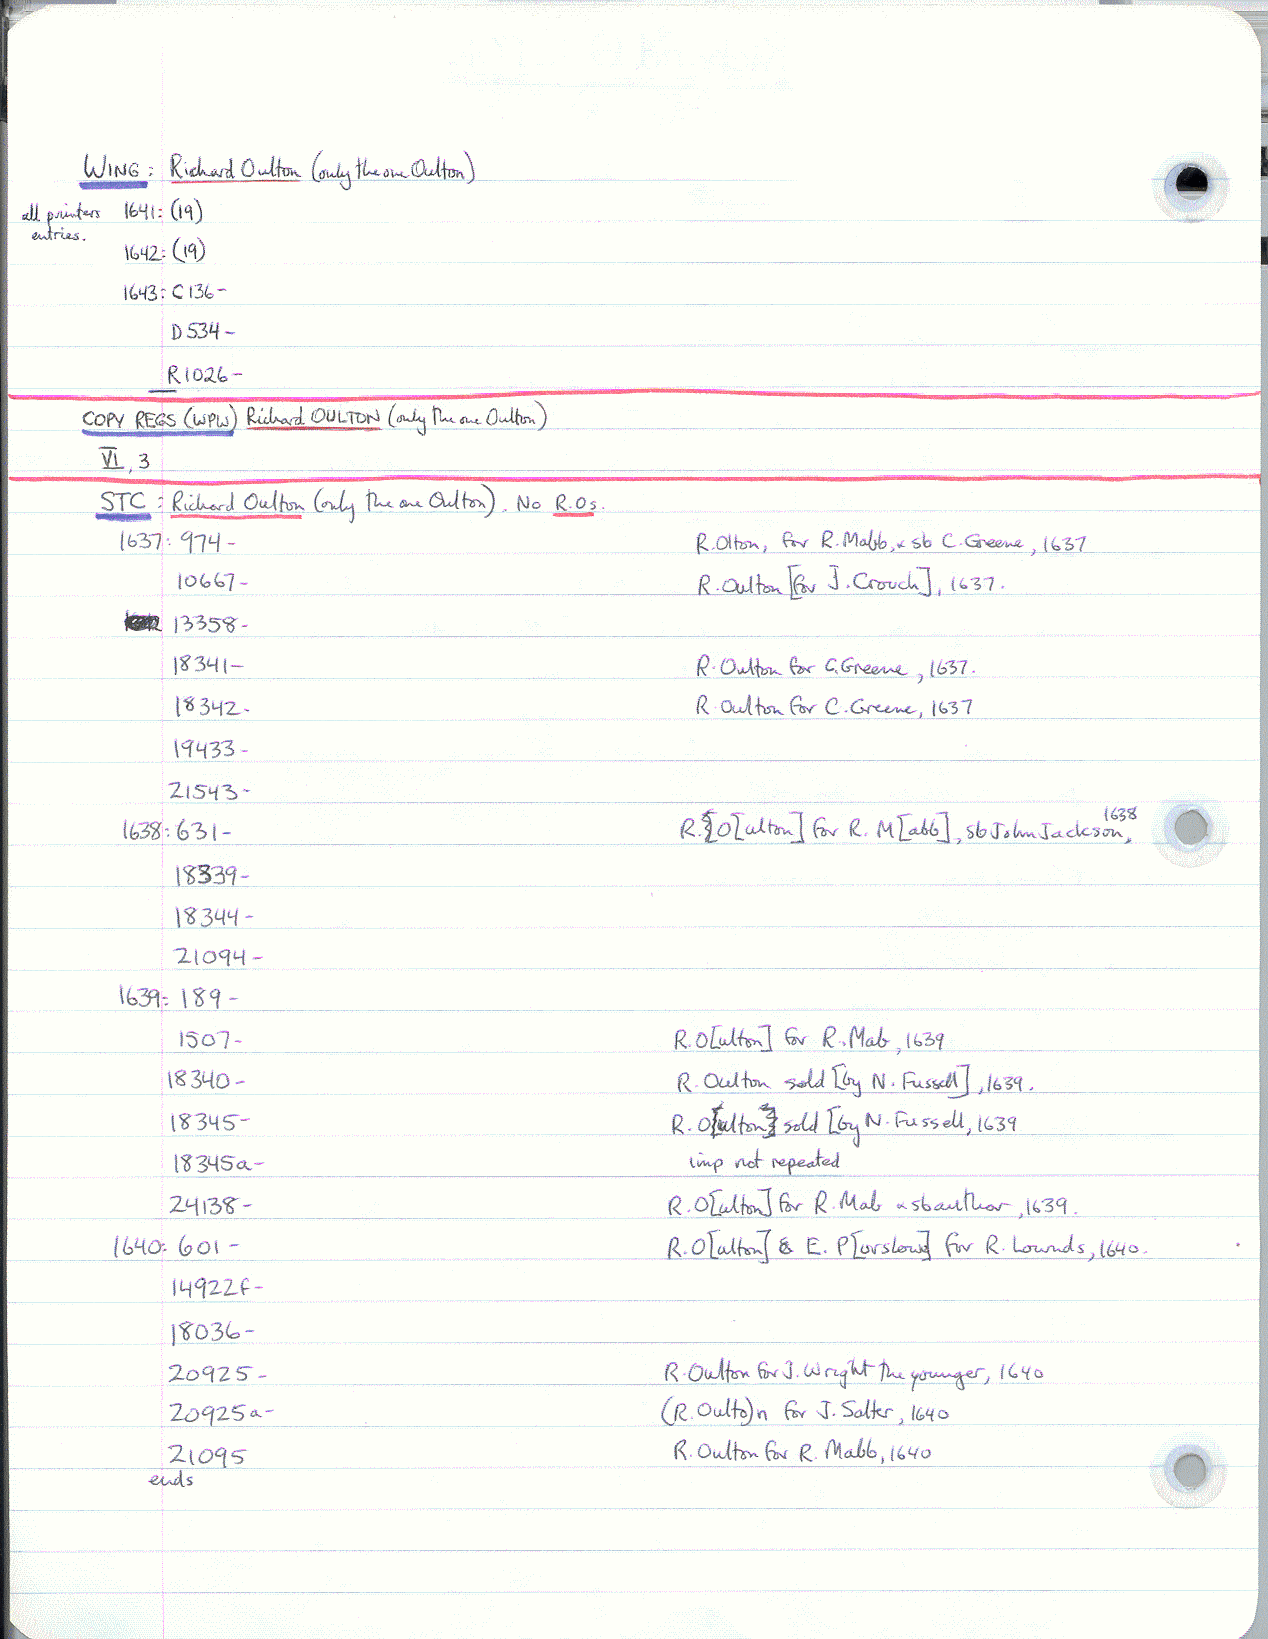 WING: Richard Oulton (only the one Oulton)
all printers entries. 1641: (19)
1642: (19)
1643: C136-
D534-
R1026-
COPY REGS (WPW) Richard OULTON (only the one Oulton)
VI, 3
STC: Richard Oulton (only the one Oulton). No R.Os.
1637: 974- R.Olton, for R.Mabb, & sb C.Greene, 1637
10667- R.Oulton [for J.Crouch], 1637.
13358-
18341- R.Oulton for C.Greene, 1637.
18342- R.Oulton for C.Greene, 1637
19433-
21543-
1638: 631- R. O[ulton] for R. M[abb], sb John Jackson, 1638
18339-
18344-
21094-
1639: 189-
1507- R.O[ulton] for R.Mab, 1639
18340- R.Oulton sold [by N. Fussell], 1639.
18345- R.Oulton sold [by N. Fussell, 1639
18345a- imp not repeated
24138- R.O[ulton] for R.Mab & sb author, 1639.
1640: 601- R.O[ulton] & E. P[urslowe] for R. Lownds, 1640.
14922f-
18036-
20925- R.Oulton for J.Wright the younger, 1640
20925a- (R.Oulto)n for J. Salter, 1640
21095 R.Oulton for R. Mabb, 1640
ends